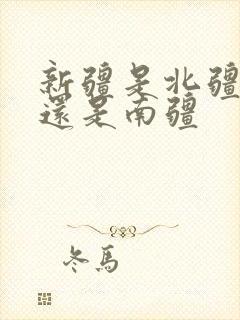 新疆是北疆
還是南疆
冬馬